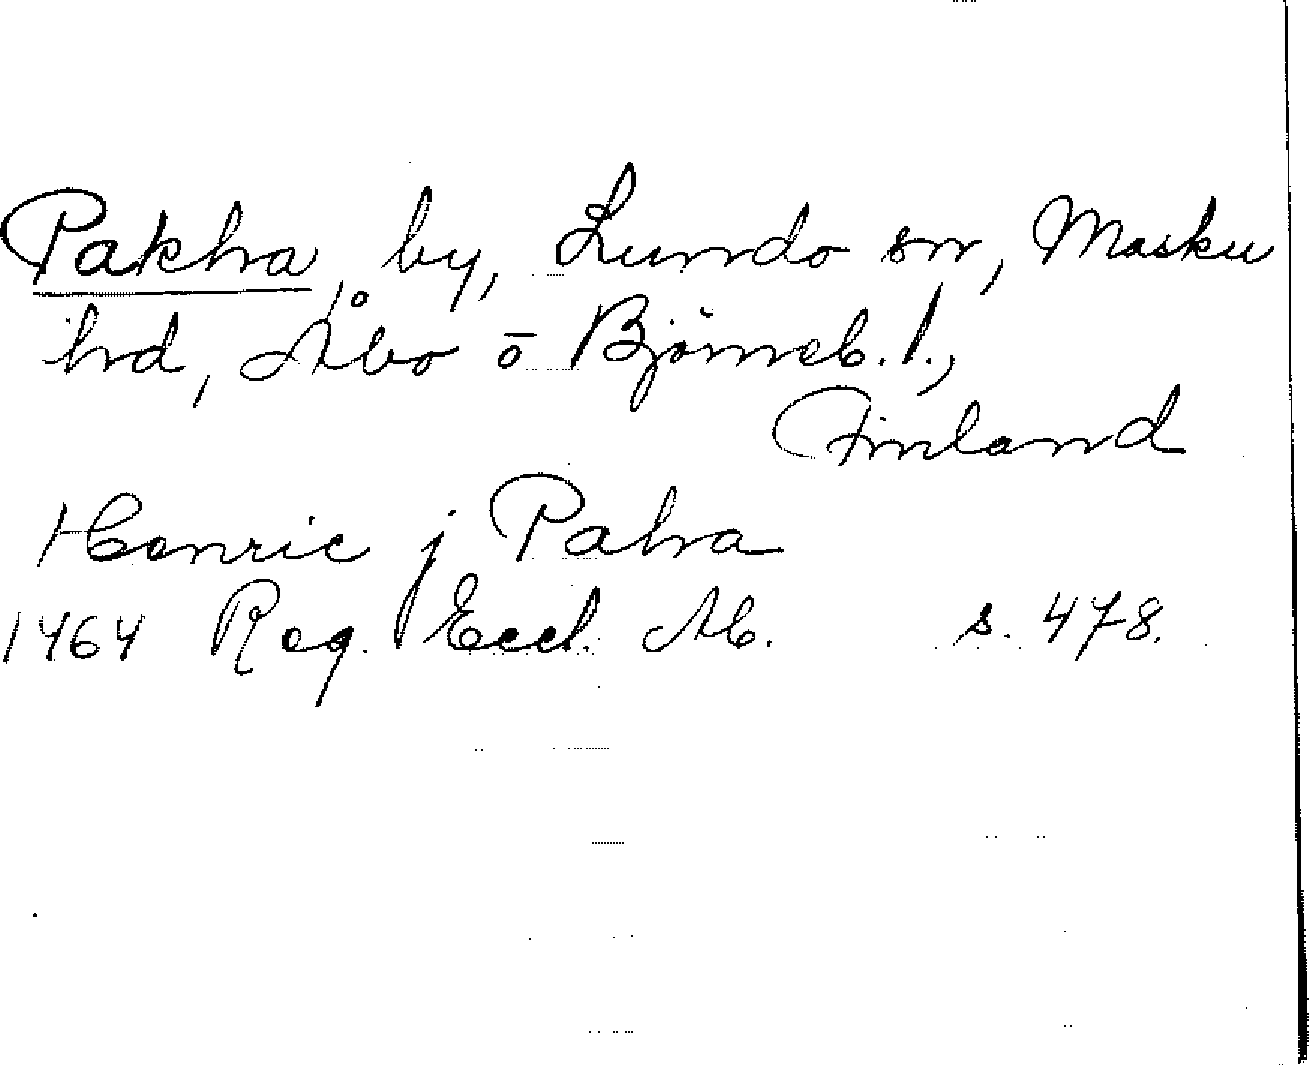 Pakha, by, Lundo sn, Masku
hd, Åbo o Björneb. l.,
Finland
Henric j Paha
1464 Reg. Eccl. Ab. s. 478.